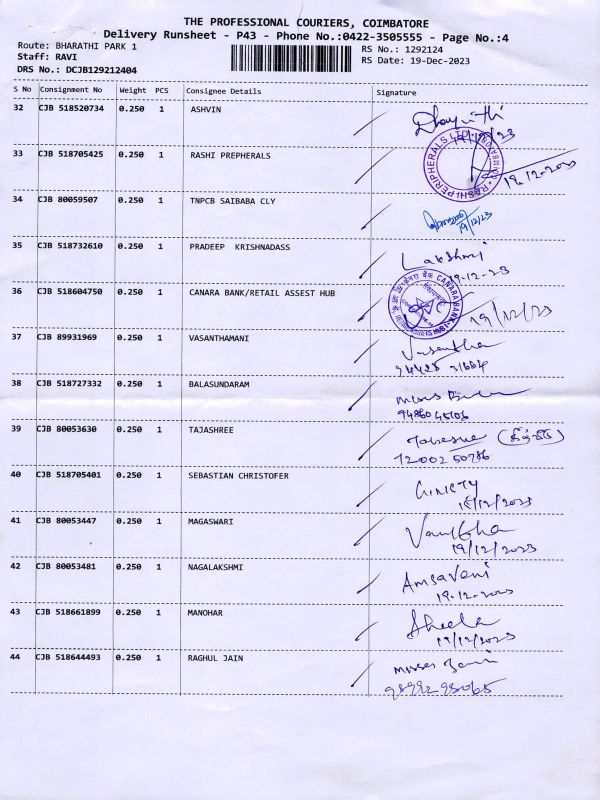 THE PROFESSIONAL COURIERS, COIMBATORE
Delivery Runsheet - P43 - Phone No.:0422-3505555 - Page No.:4
Route: BHARATHI PARK 1 RS No.: 1292124
Staff: RAVI RS Date: 19-Dec-2023
DRS No.: DCJB129212404
S No Consignment No Weight PCS Consignee Details Signature
32 CJB 518520734 0.250 1 ASHVIN
19/12/23
33 CJB 518705425 0.250 1 RASHI PREPHERALS
RASHI PERIPHERALS LTD.
19.12.2023
34 CJB 80059507 0.250 1 TNPCB SAIBABA CLY
19/12/23
35 CJB 518732610 0.250 1 PRADEEP KRISHNADASS Lakshmi
19-12-23
36 CJB 518604750 0.250 1 CANARA BANK/RETAIL ASSEST HUB
CANARA BANK
19/12/23
37 CJB 89931969 0.250 1 VASANTHAMANI Vasantha
38 CJB 518727332 0.250 1 BALASUNDARAM
39 CJB 80053630 0.250 1 TAJASHREE
72002 50786
40 CJB 518705401 0.250 1 SEBASTIAN CHRISTOFER
19/12/2023
41 CJB 80053447 0.250 1 MAGASWARI
19/12/2023
42 CJB 80053481 0.250 1 NAGALAKSHMI Amsaveni
19-12-2023
43 CJB 518661899 0.250 1 MANOHAR Sheela
19/12/2023
44 CJB 518644493 0.250 1 RAGHUL JAIN